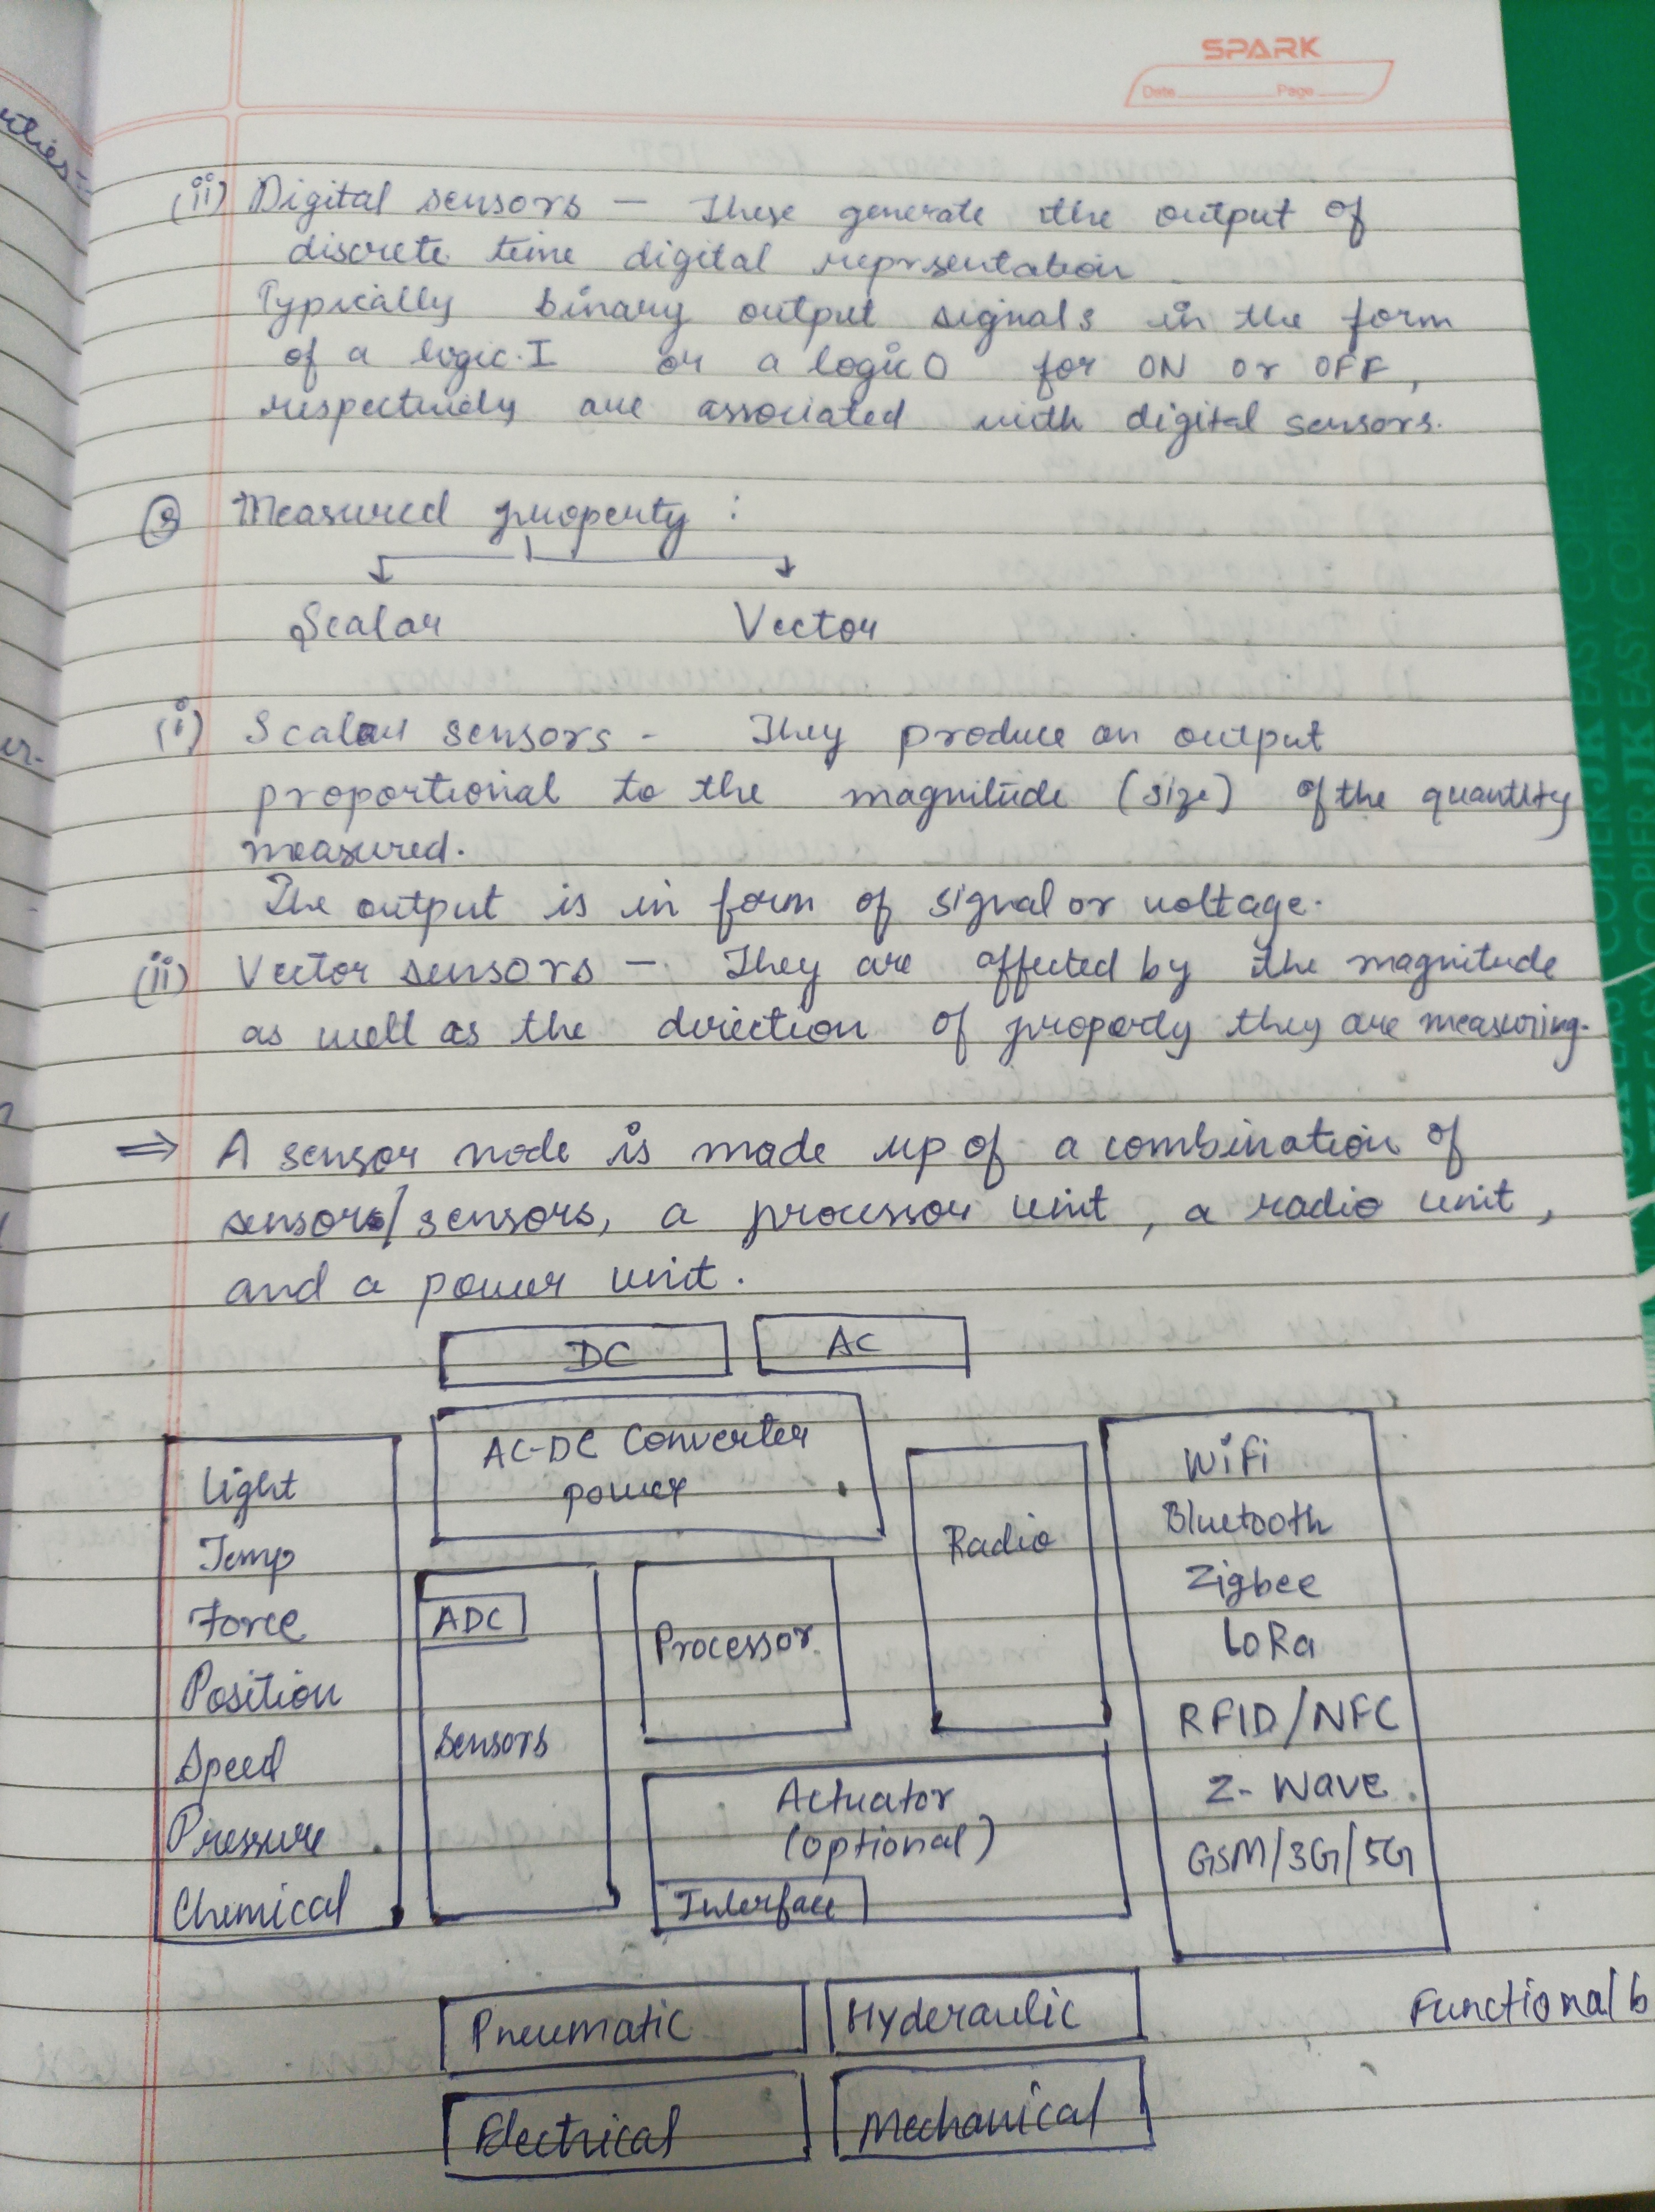 SPARK
Date Page
(ii) Digital sensors — These generate the output of
discrete time digital reprsentation
Typically binary output signals in the form
of a logic I or a logic 0 for ON or OFF,
respectively are associated with digital sensors.
③ Measured property :
Scalar Vector
(i) Scalar sensors - They produce an output
proportional to the magnitude (size) of the quantity
measured.
The output is in form of signal or voltage.
(ii) Vector sensors — They are affected by the magnitude
as well as the direction of property they are measuring.
⇒ A sensor node is made up of a combination of
sensors/sensors, a processor unit, a radio unit,
and a power unit.
DC AC
AC-DC Converter
power
Light
Temp
Force
Position
Speed
Pressure
Chemical
ADC
Sensors
Processor
Radio
WiFi
Bluetooth
Zigbee
LoRa
RFID/NFC
Z-Wave
GSM/3G/5G
Actuator
(optional)
Interface
Pneumatic Hyderaulic
Functional b
Electrical Mechanical
EASY COPIER
JK EASY COPIER